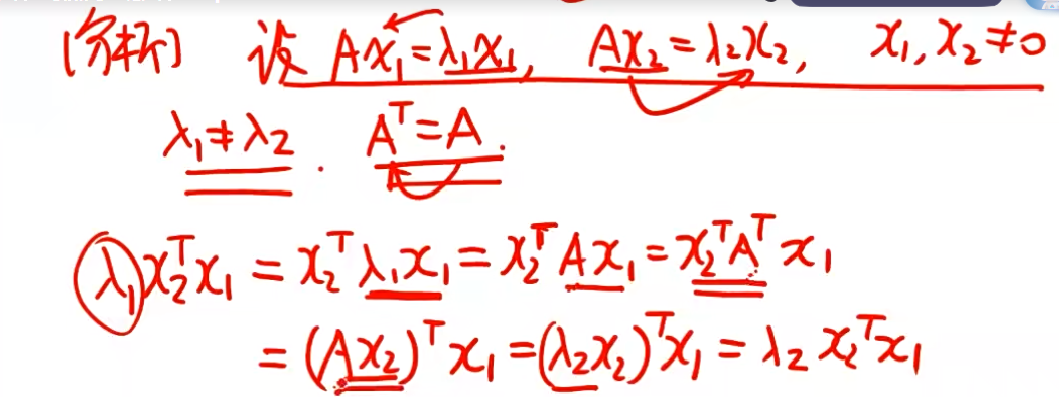 [分析] 设 Ax₁=λ₁x₁, Ax₂=λ₂x₂, x₁,x₂≠0
λ₁≠λ₂. Aᵀ=A.
λ₁x₂ᵀx₁=x₂ᵀλ₁x₁=x₂ᵀAx₁=x₂ᵀAᵀx₁
=(Ax₂)ᵀx₁=(λ₂x₂)ᵀx₁=λ₂x₂ᵀx₁